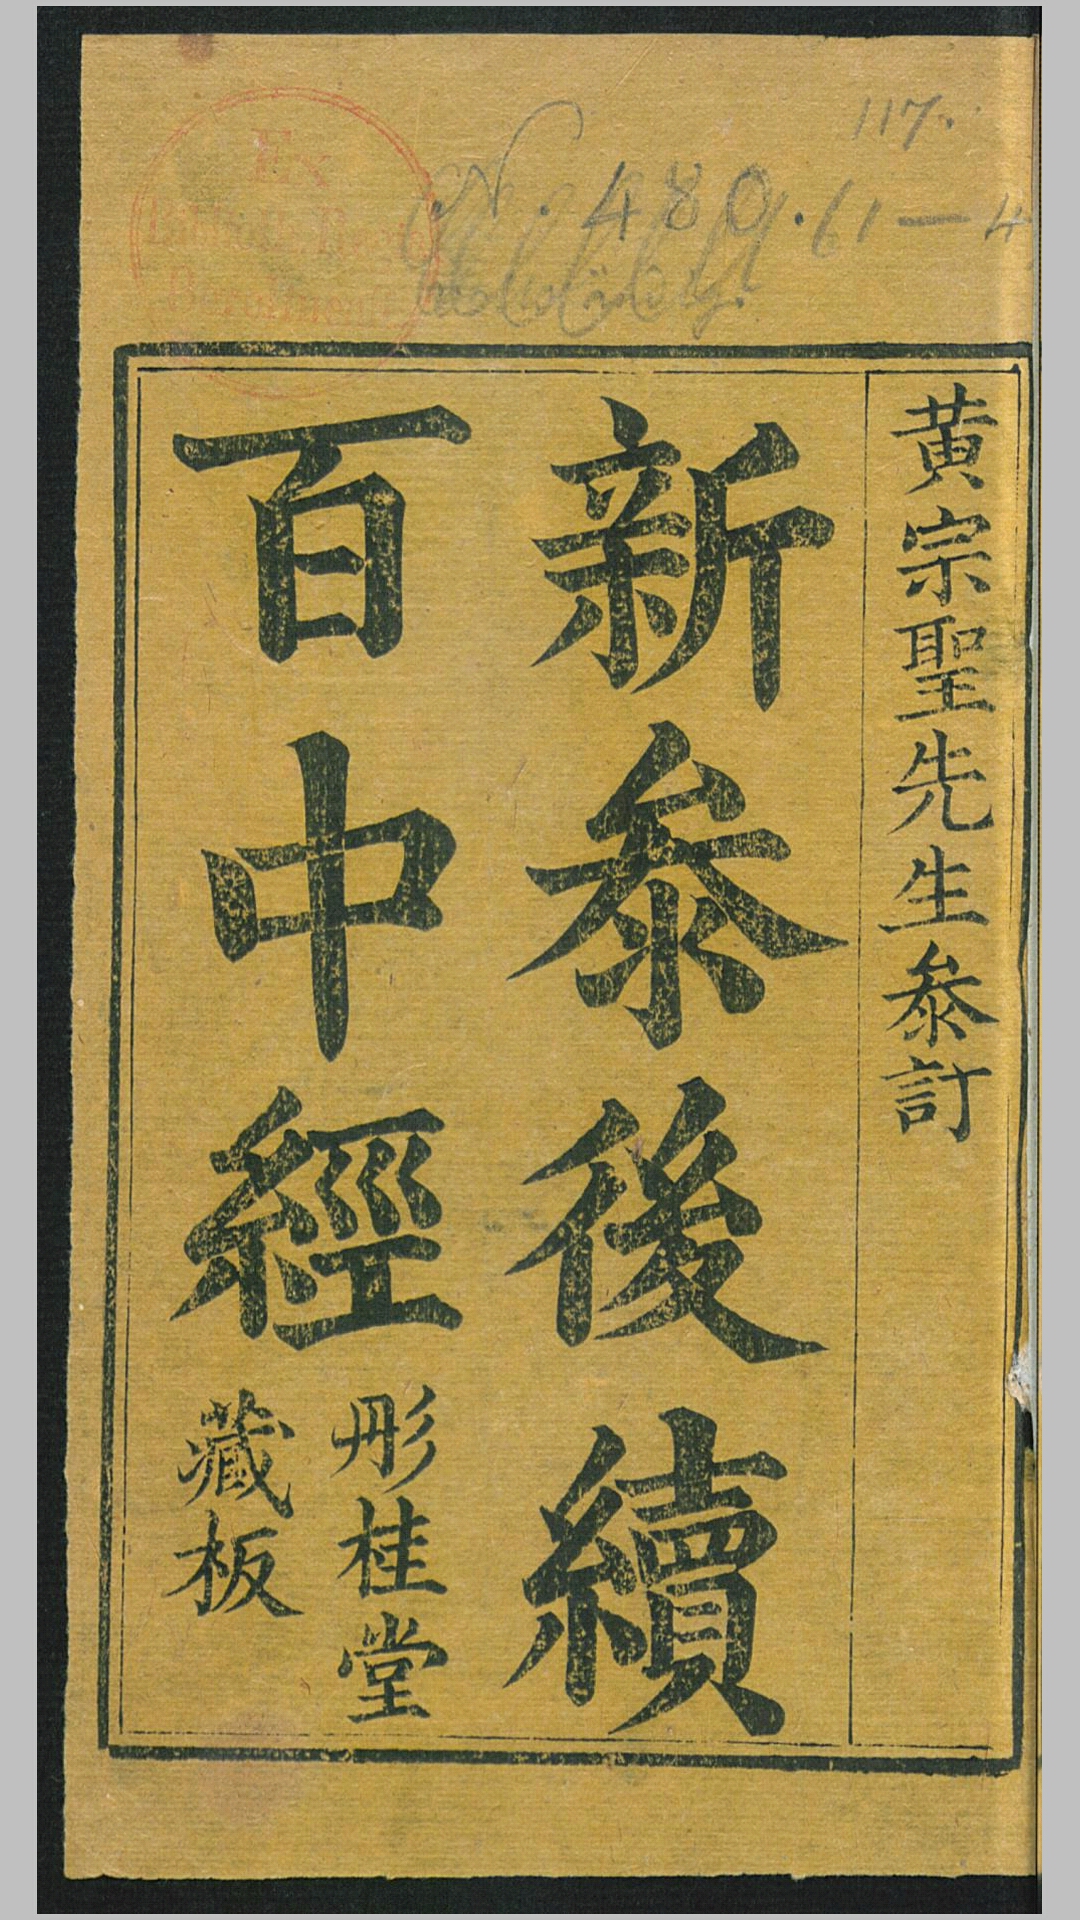 黄宗聖先生叅訂
新叅後續
百中經
彤桂堂
藏板
117.
N. 480. 61—4
Ex